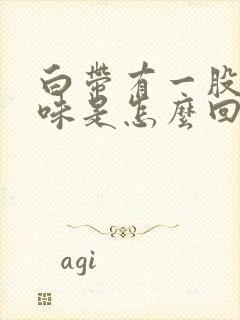 白带有一股
味是怎麼回
agi